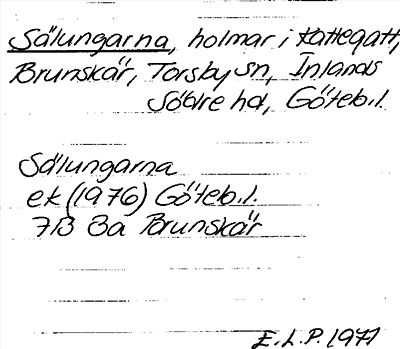 Sälungarna, holmar i Kattegatt,
Brunskär, Torsby sn, Inlands
Södre hd, Göteb.l.
Sälungarna
ek (1976) Göteb.l.
7B 8a Brunskär
E.L.P. 1977